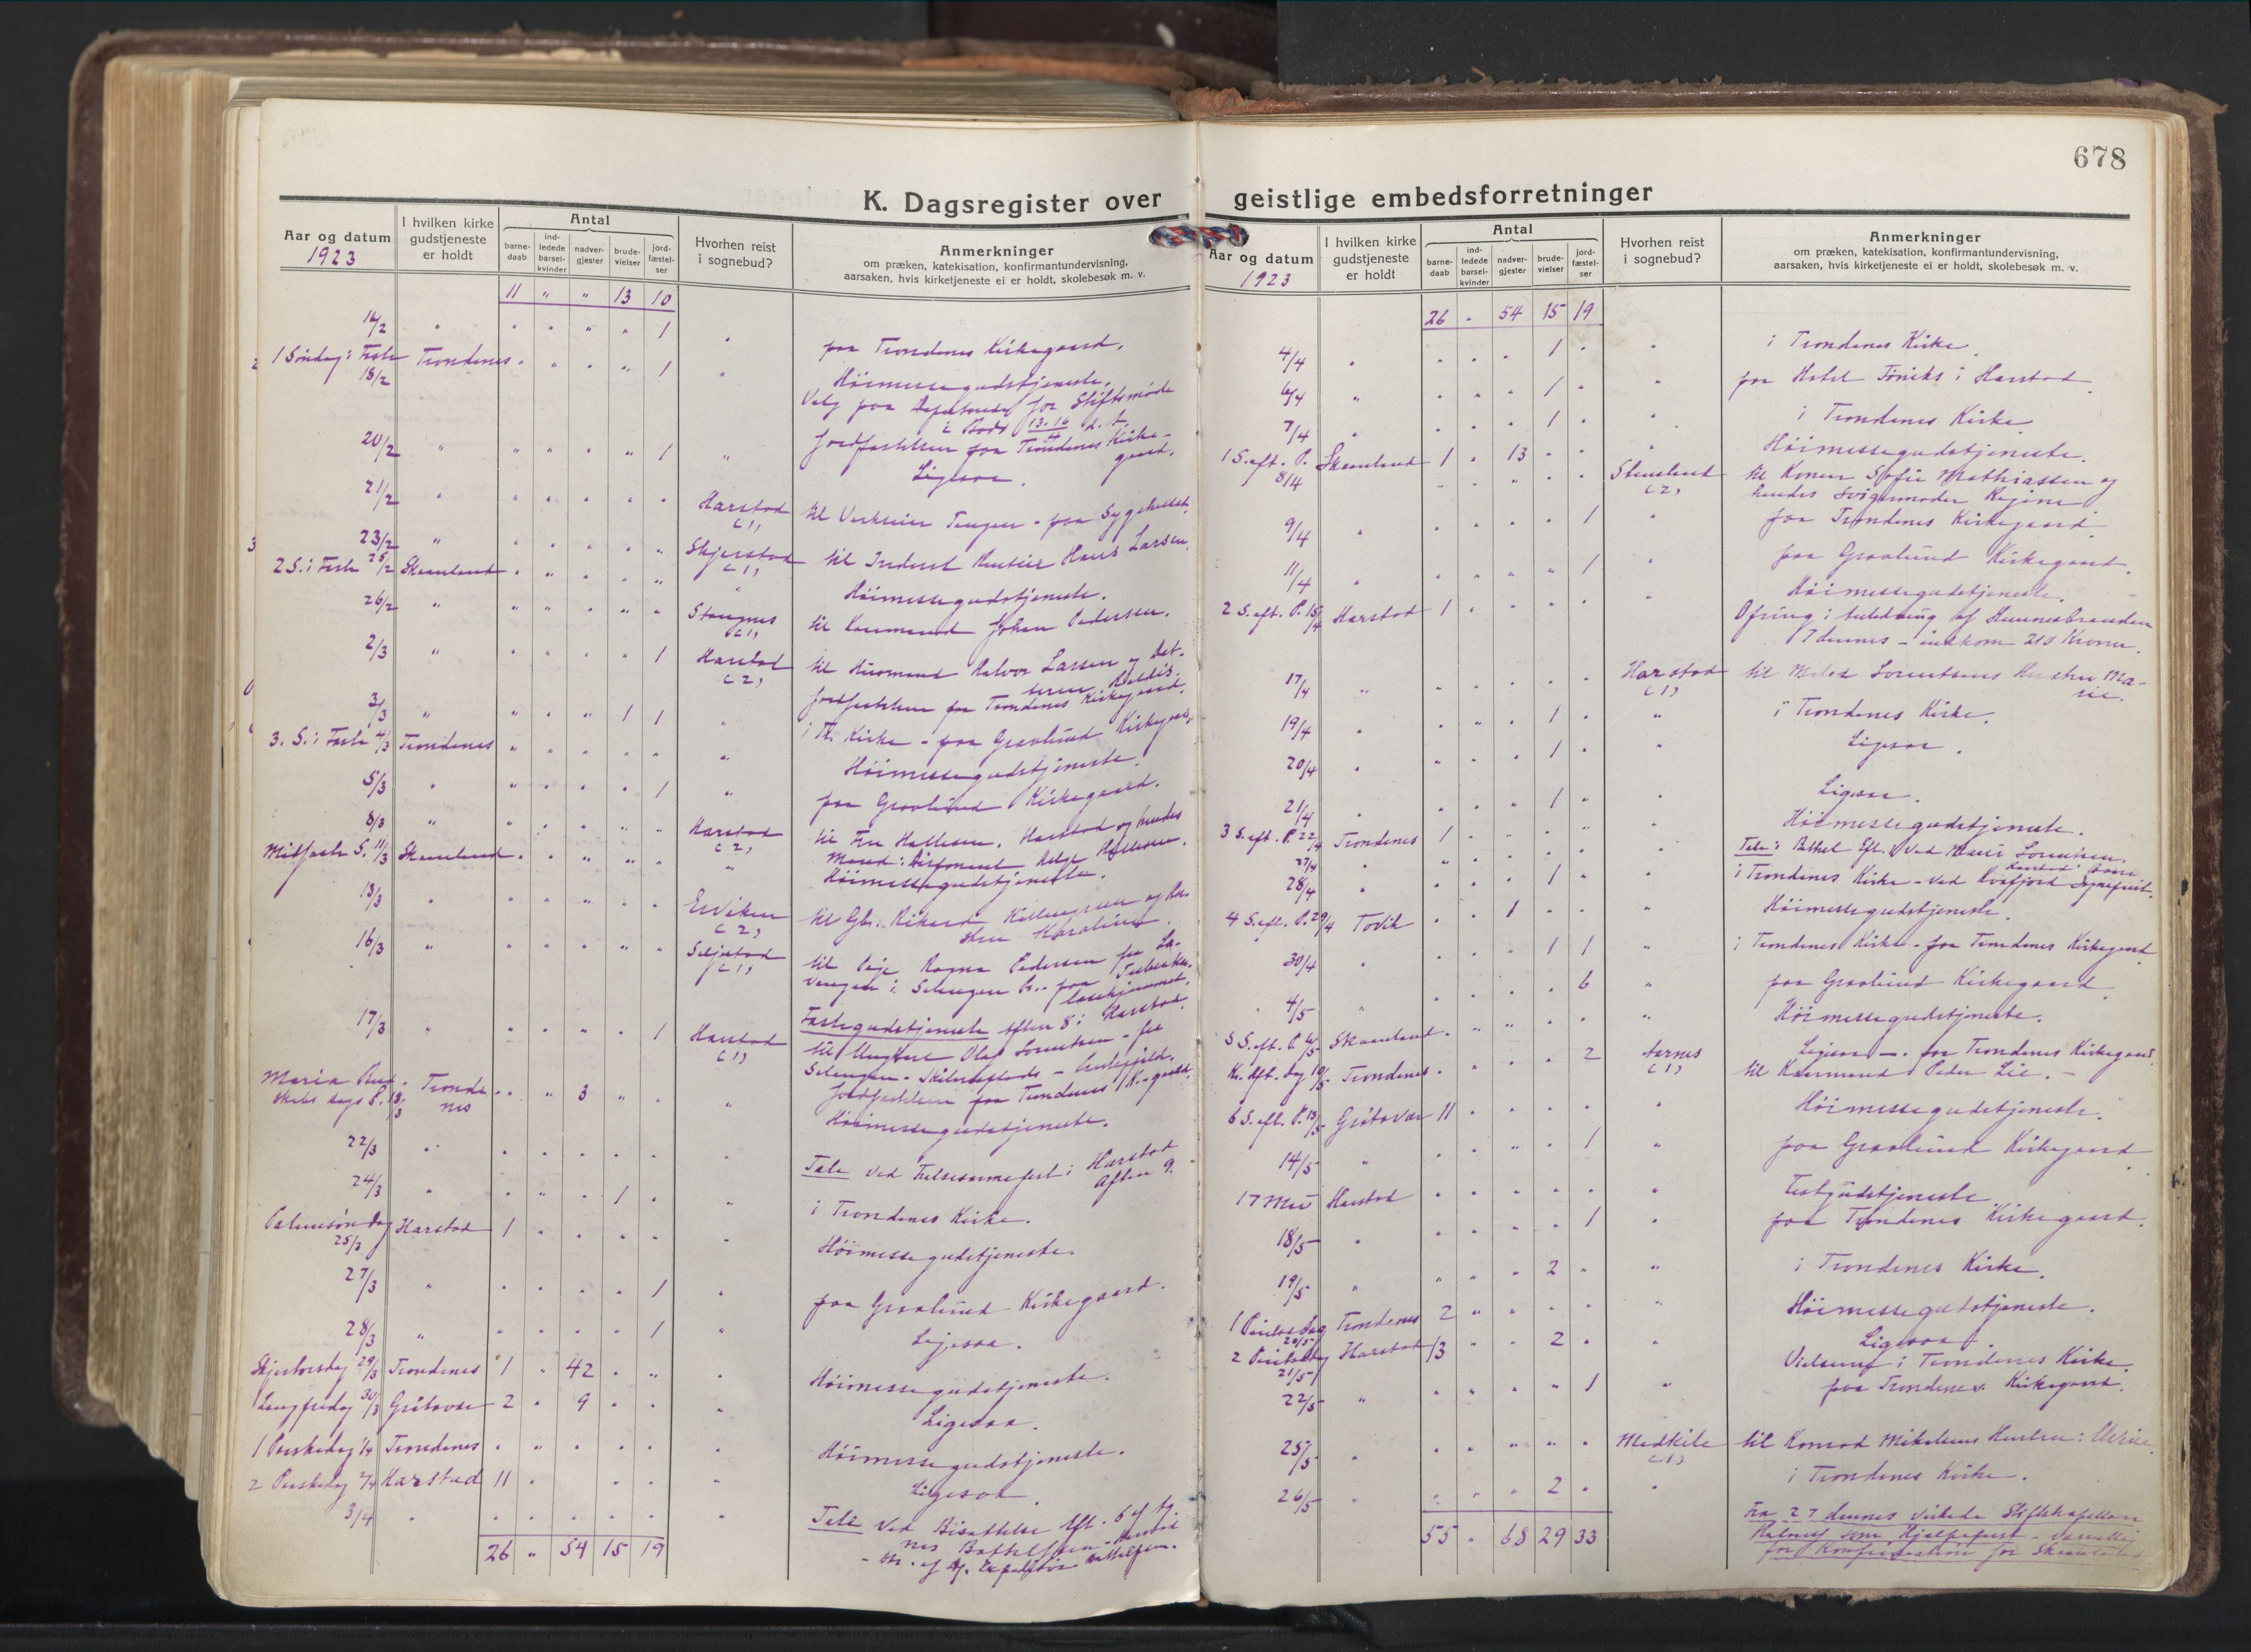 678
K. Dagsregister over geistlige embedsforretninger
Aar og datum
1923
I hvilken kirke gudstjeneste er holdt
Antal
barne-daab
ind-ledede barsel-kvinder
nadver-gjester
brude-vielser
jord-fæstel-ser
Hvorhen reist i sognebud?
Anmerkninger
om præken, katekisation, konfirmantundervisning,
aarsaken, hvis kirketjeneste ei er holdt, skolebesøk m. v.
11 " " 13 10
16/2 " " " " " 1 " paa Trondenes Kirkegaard.
1 Søndag i Faste 18/2 Trondenes " " " " 1 " Høimessegudstjeneste.
Valg paa for Stiftsmøde
i Bodø 13-16/4 d. A.
20/2 " " " " " 1 " Jordfæstelsen paa Trondenes Kirke-
gaard.
Ligesaa.
21/2 " " " " " " Harstad (1) til Tangen - paa Sygehuset.
23/2 " " " " " " Skjerstad (1) til Inderst Hans Larsen.
2 S. i Faste 25/2 Skaanland " " " " " " Høimessegudstjeneste.
26/2 " " " " " " Stangnes (1) til Kaarmand Johan Pedersen.
2/3 " " " " " 1 Harstad (2) til Husmand Halvor Larsen og Dat-
teren
Jordfæstelsen paa Trondenes Kirkegaard.
3/3 " " " " 1 1 " i Tr. Kirke - paa Graalund Kirkegaard.
3. S. i Faste 4/3 Trondenes " " " " " " Høimessegudstjeneste.
5/3 " " " " " 1 " paa Graalund Kirkegaard.
8/3 " " " " " " Harstad (2) til Fru Hallesen, Harstad og hendes
Mand: Disponent Helge Hallesen.
Midfaste S. 11/3 Skaanland " " " " " " Høimessegudstjeneste.
13/3 " " " " " " Erviken (2) til Gbr. Rikard og Hu-
stru
16/3 " " " " " " Seljestad (1) til Pige Ragna Pedersen fra La-
vangen i Salangen
17/3 " " " " " 1 Harstad (1) Fastegudstjeneste Aften 8 i Harstad.
til Ungkarl Olaf Sørensen - fra
Salangen
Jordfæstelsen paa Trondenes K.-gaard.
Maria Bud-
skabs dags S. 18/3 Tronde-
nes " " 3 " " " Høimessegudstjeneste.
22/3 " " " " " " " Tale ved Frelsesarmefest i Harstad
Aften 9.
24/3 " " " " 1 " " i Trondenes Kirke.
Palmesøndag 25/3 Harstad 1 " " " " " Høimessegudstjeneste.
27/3 " " " " " 1 " paa Graalund Kirkegaard.
28/3 " " " " " 1 " Ligesaa.
Skjertorsdag 29/3 Trondenes 1 " 42 " " " Høimessegudstjeneste.
Langfredag 30/3 Grøtavær 2 " 9 " " " Ligesaa.
1 Paaskedag 1/4 Trondenes " " " " " " Høimessegudstjeneste.
2 Paaskedag 2/4 Harstad 11 " " " " Ligesaa.
3/4 " " " " " " " Tale ved Bisættelse Aft. 6
26 " 54 15 19
Aar og datum
1923
I hvilken kirke gudstjeneste er holdt
Antal
barne-daab
ind-ledede barsel-kvinder
nadver-gjester
brude-vielser
jord-fæstel-ser
Hvorhen reist i sognebud?
Anmerkninger
om præken, katekisation, konfirmantundervisning,
aarsaken, hvis kirketjeneste ei er holdt, skolebesøk m. v.
26 " 54 15 19
4/4 " " " " 1 " " i Trondenes Kirke.
6/4 " " " " 1 " " paa Hotel Føniks i Harstad.
7/4 " " " " 1 " " i Trondenes Kirke
1 S. eft. P. 8/4 Skaanland 1 " 13 " " " Høimessegudstjeneste.
" " " " " Stensland (2) til Konen Sofie Mathiassen og
hendes Svigermoder Regine
9/4 " " " " " 1 " paa Trondenes Kirkegaard.
11/4 " " " " " 1 " paa Graalund Kirkegaard.
2 S. eft. P. 15/4 Harstad 1 " " " " " Høimessegudstjeneste.
Ofring i Anledning af Hunnesbranden
7 dennes - indkom 210 Kroner.
17/4 " " " " " " Harstad (1) til Sørensens Hustru Ma-
rie.
19/4 " " " " 1 " " i Trondenes Kirke.
20/4 " " " " 1 " " Ligesaa.
21/4 " " " " 1 " " Ligesaa.
3 S. eft. P. 22/4 Trondenes 1 " " " " " Høimessegudstjeneste.
27/4 " " " " " " " Tale i Bethel Eft.
28/4 " " " " 1 " " i Trondenes Kirke - ved Kvæfjord
4 S. eft. P. 29/4 Tovik " " 1 " " " Høimessegudstjeneste.
30/4 " " " " 1 1 " i Trondenes Kirke - paa Trondenes Kirkegaard.
4/5 " " " " " 6 " paa Graalund Kirkegaard.
5 S. eft. P. 6/5 Skaanland " " " " " " Høimessegudstjeneste.
Kr. Hft. Dag 10/5 Trondenes " " " " 2 Aarnes (1) Ligesaa - paa Trondenes Kirkegaard
til Kaarmand Peder Lie. -
6 S. eft. P. 13/5 Grøtavær 11 " " " " " Høimessegudstjeneste.
14/5 " " " " " 1 " paa Graalund Kirkegaard.
17 Mai Harstad " " " " " " Festgudstjeneste
18/5 " " " " " 1 " paa Trondenes Kirkegaard.
19/5 " " " " 2 " " i Trondenes Kirke.
1 Pinsedag 20/5 Trondenes 2 " " " " " Høimessegudstjeneste.
2 Pinsedag 21/5 Harstad 13 " " 2 " " Ligesaa.
Vielserne i Trondenes Kirke.
22/5 " " " " " 1 " paa Trondenes Kirkegaard.
25/5 " " " " " " Medkile (1) til Konrad Mikalsens Hustru:
26/5 " " " " 2 " " i Trondenes Kirke.
55 " 68 29 33
Fra 27 dennes virkede Stiftskapellan
som Hjælpeprest
for Skaanland